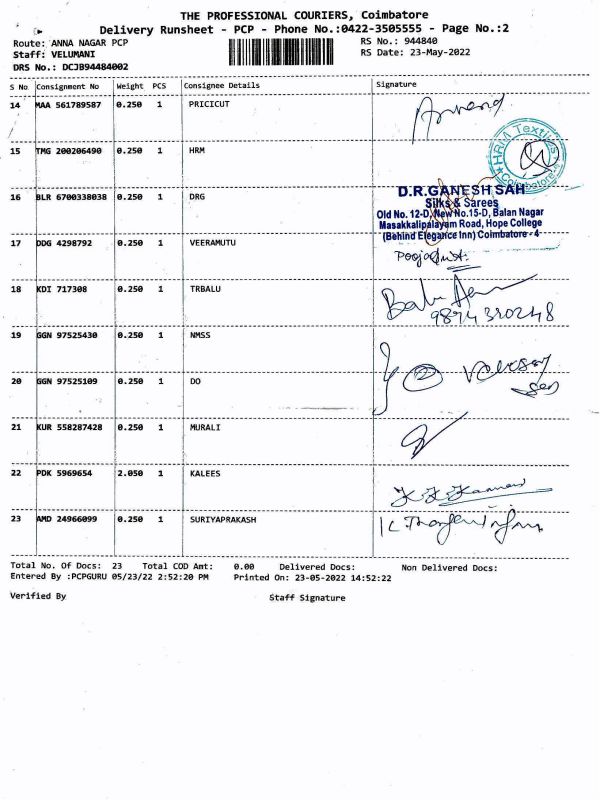 THE PROFESSIONAL COURIERS, Coimbatore
Delivery Runsheet - PCP - Phone No.:0422-3505555 - Page No.:2
Route: ANNA NAGAR PCP
RS No.: 944840
Staff: VELUMANI
RS Date: 23-May-2022
DRS No.: DCJB94484002
S No Consignment No Weight PCS Consignee Details Signature
14 MAA 561789587 0.250 1 PRICICUT
15 TMG 200206490 0.250 1 HRM
HRM Textiles
Coimbatore
16 BLR 6700338038 0.250 1 DRG
D.R.GANESH SAH
Silks & Sarees
Old No. 12-D, New No.15-D, Balan Nagar
Masakkalipalayam Road, Hope College
(Behind Elegance Inn) Coimbatore - 4
17 DDG 4298792 0.250 1 VEERAMUTU
18 KDI 717308 0.250 1 TRBALU
Babu
9894320248
19 GGN 97525430 0.250 1 NMSS
20 GGN 97525109 0.250 1 DO
2
21 KUR 558287428 0.250 1 MURALI
22 PDK 5969654 2.050 1 KALEES
23 AMD 24966099 0.250 1 SURIYAPRAKASH
Total No. Of Docs: 23 Total COD Amt: 0.00 Delivered Docs: Non Delivered Docs:
Entered By :PCPGURU 05/23/22 2:52:20 PM Printed On: 23-05-2022 14:52:22
Verified By Staff Signature